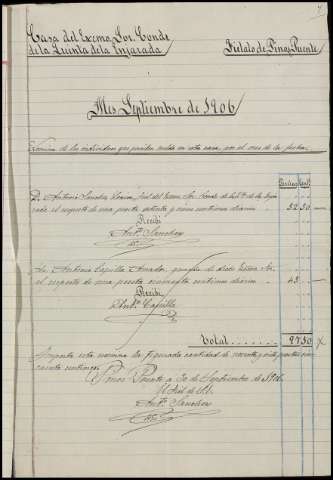 Casa del Excmo. Sor. Conde
de la Quinta de la Enjarada
Fielato de Pinos Puente
Mes Septiembre de 1906
Nomina de los individuos que perciben sueldo en esta casa, por el mes de la fecha.
Pesetas Cent.
D. Antonio Sanchez fiel del Excmo. Sor. Conde de la Qta. de la Enja-
rada al respecto de una peseta setenta y cinco centimos diarios 52 50
Recibi
Antº. Sanchez
Antonio Capilla Amador, guarda de dicho Señor
al respecto de una peseta cincuenta centimos diarios 45
Recibi
Antº. Capilla
Total 97 50
Importa esta nomina la figurada cantidad de noventa y siete pesetas cin-
cuenta centimos.
Pinos Puente a 30 de Septiembre de 1906.
El Fiel de S.E.
Antº. Sanchez